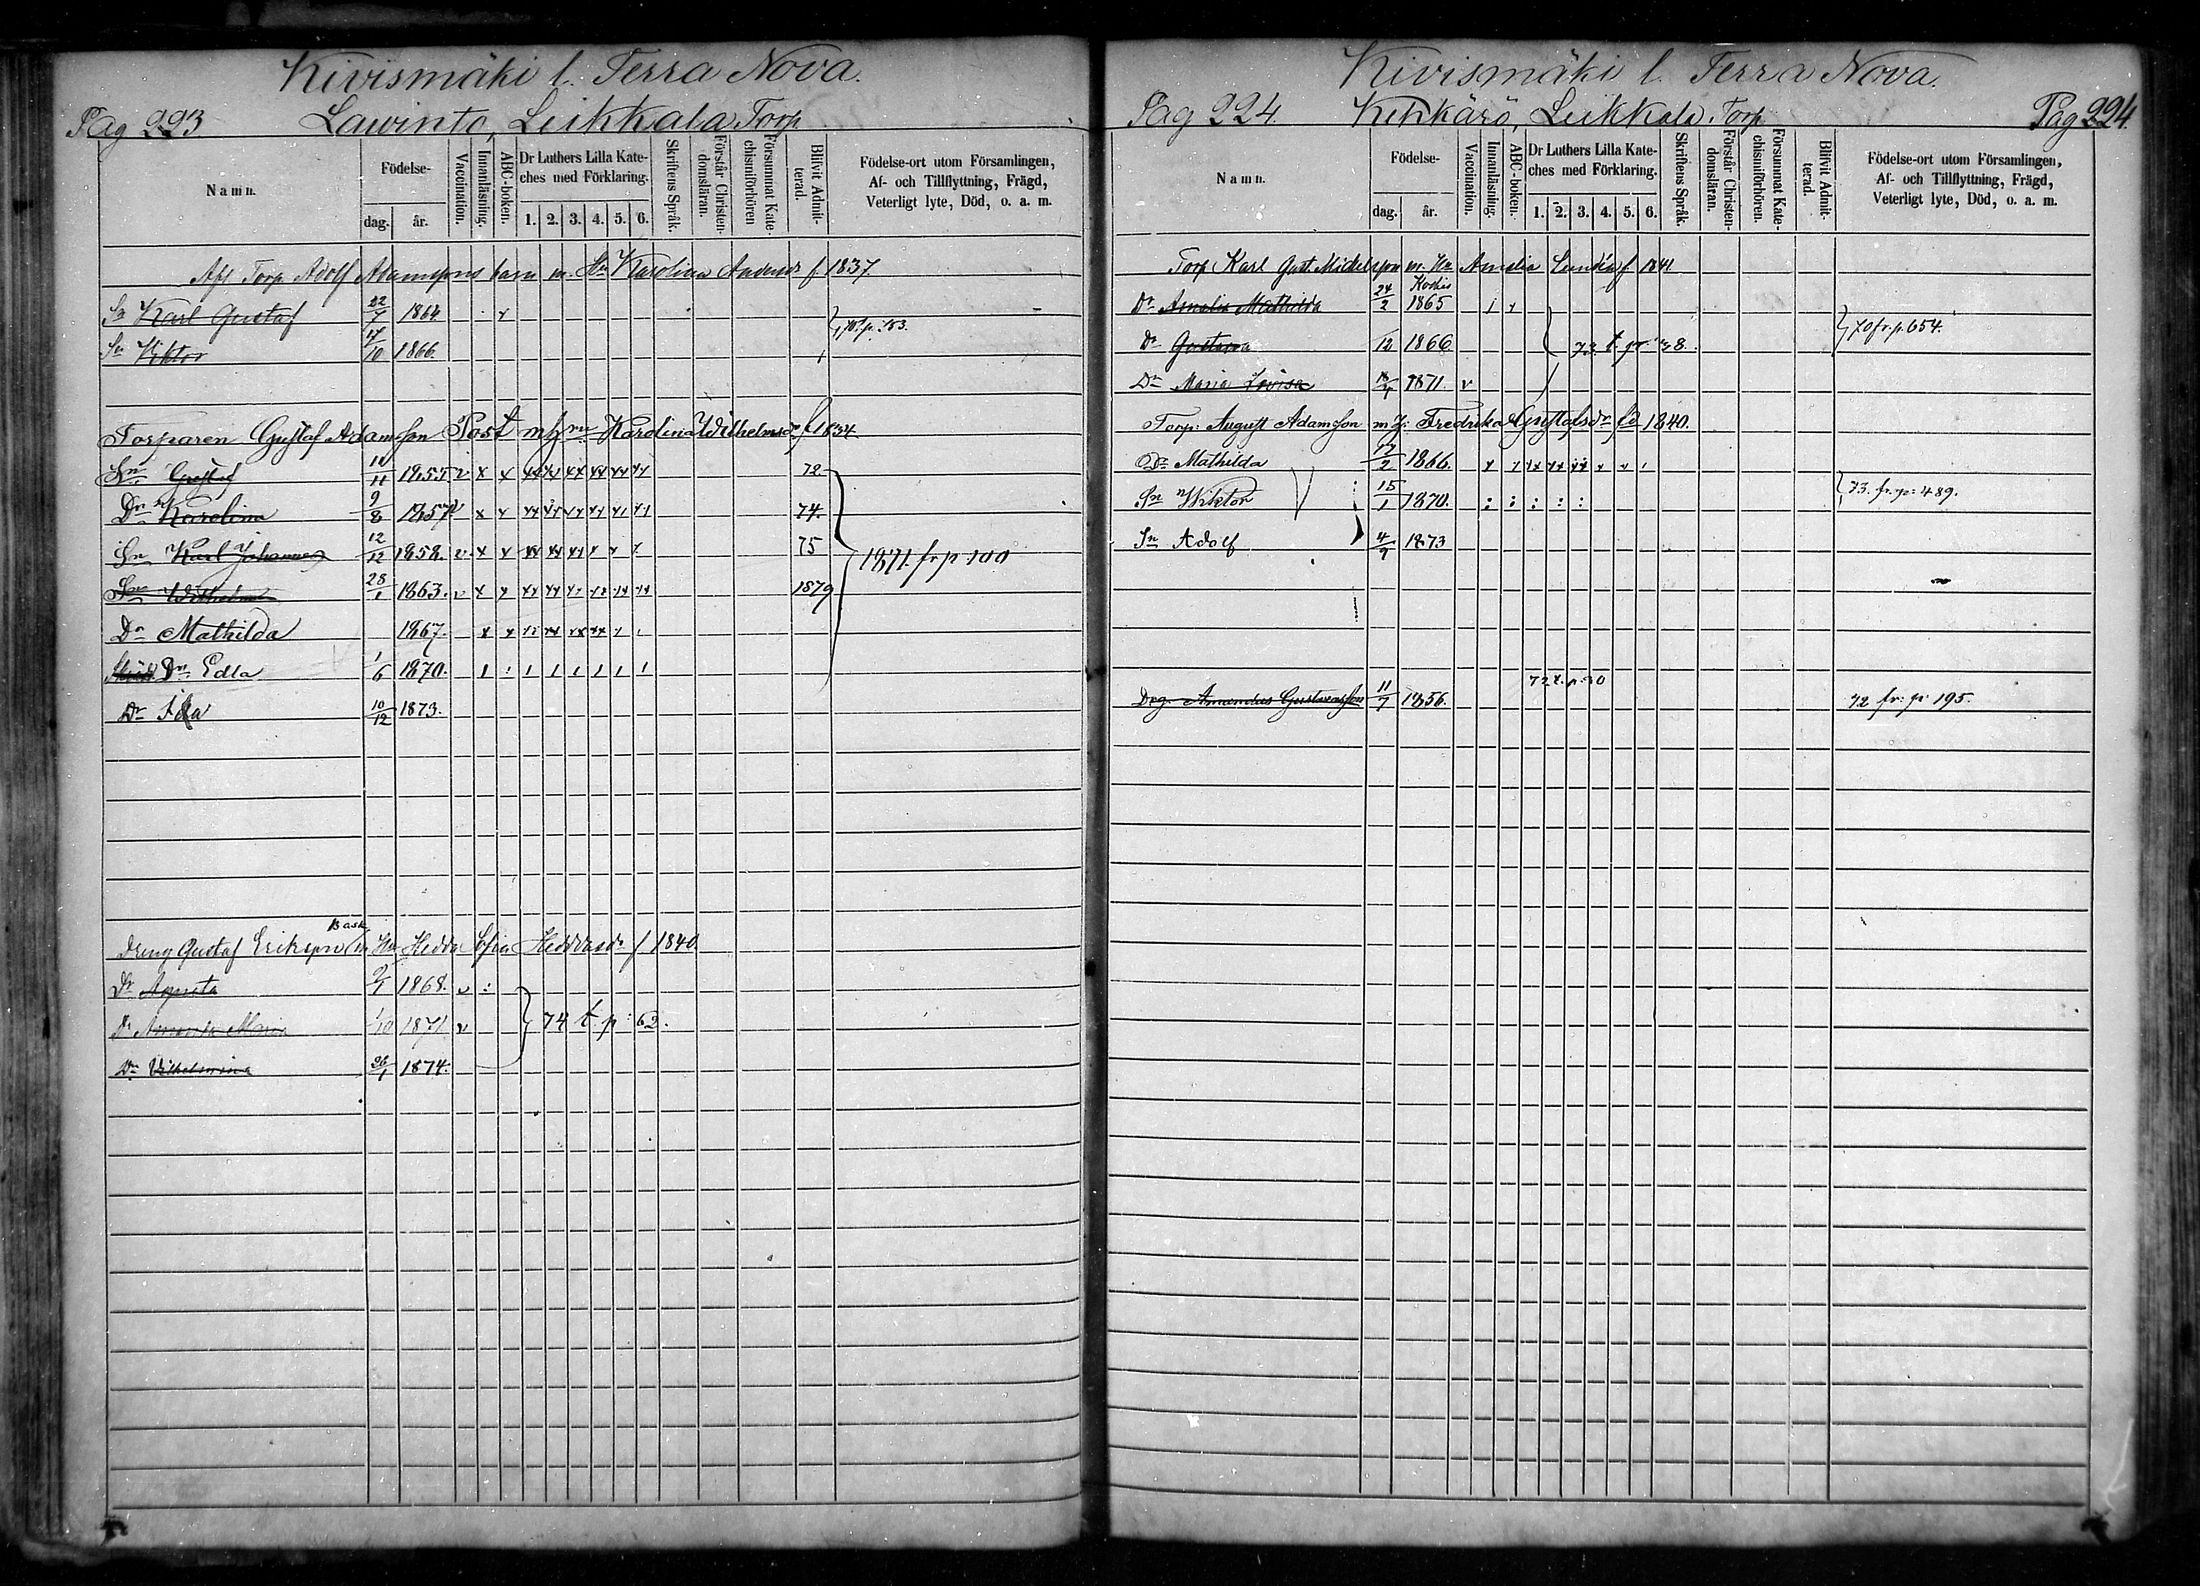 Kivismäki l. Terra Nova.
Pag 223 Lawinto, Leikkala Torp
Namn. Födelse- dag. år. Vaccination. Innanläsning. ABC-boken. Dr Luthers Lilla Kateches med Förklaring. 1. 2. 3. 4. 5. 6. Skriftens Språk. Förstår Christendomsläran. Försummat Katechismiförhören Blifvit Admitterad. Födelse-ort utom Församlingen, Af- och Tillflyttning, Frägd, Veterligt lyte, Död, o. a. m.
Afl Torp. Adolf Adamssons barn m. Hu Karolina Andersdr f. 1837.
Sn Karl Gustaf 22/7 1864
Sn Viktor 17/10 1866.
Torparen Gustaf Adamsson Post m hru Karolina Wilhelmsdr f 1834
Sn Gustaf 11/11 1855 v x x 72
Dr Karolina 9/8 1857 v x x 74.
Sn Karl Johannes 12/12 1858. v. x x 75
1871. fr p 100
Sn Wilhelm 28/1 1863. v x x 1879
Dr Mathilda 1867.
Dr Edla 1/6 1870.
Dr Ida 10/12 1873.
Dreng Gustaf Eriksson Bask m Hu Hedda Sofia Heddasdr f. 1840.
Dr Agneta 1868. v
Dr Amanda Maria 1/10 1871 v 74 t p: 62.
Dr Vilhelmina 26/1 1874.
Kivismäki l. Terra Nova.
Pag 224. Kehkärö, Leikkala. Torp. Pag 224.
Namn. Födelse- dag. år. Vaccination. Innanläsning. ABC-boken. Dr Luthers Lilla Kateches med Förklaring. 1. 2. 3. 4. 5. 6. Skriftens Språk. Förstår Christendomsläran. Försummat Katechismiförhören. Blifvit Admitterad. Födelse-ort utom Församlingen, Af- och Tillflyttning, Frägd, Veterligt lyte, Död, o. a. m.
Torp Karl Gust. Mickelsson m. Hu Amalia f 1841
Dr Amalia Mathilda 24/2 1865
70 fr. p. 654.
Dr Gustava 12 1866
Dr Maria Lovisa 1871. v
Torp. August Adamsson m h: Fredrika Gustafsdr fd 1840.
Dr Mathilda 17/2 1866.
73. fr. p: 489.
Sn Wiktor 15/1 1870.
Sn Adolf 4/9 1873
72 t. p. 30
Drg. Amandus Gustavsson 11/7 1856. 72 fr: p: 195.